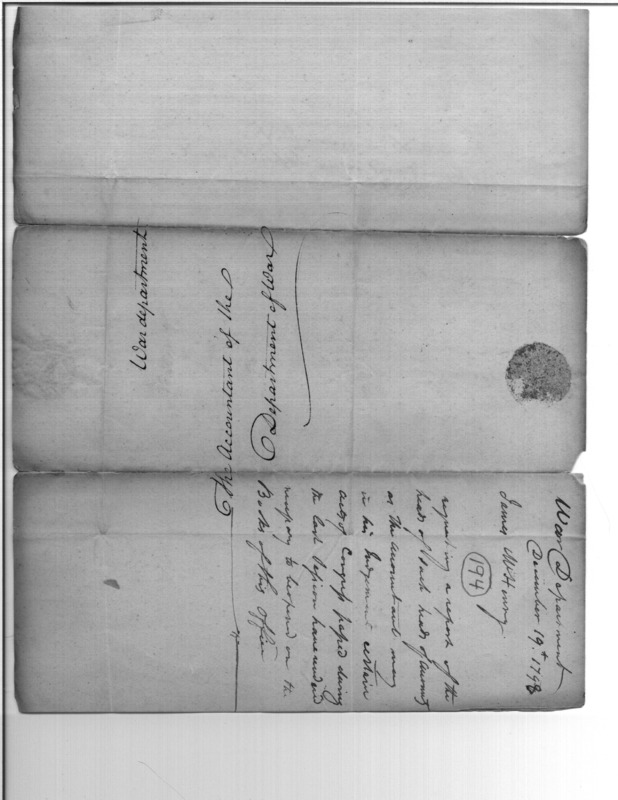 War department
The Accountant of the
Department of War
War Department
December 19th 1798
James McHenry
194
requesting a report of the
heads of such heads of accounts
as the Accountant may
in his Judgment certain
acts of Congress passed during
the last Session have rendered
necessary to be opened on the
Books of this Office